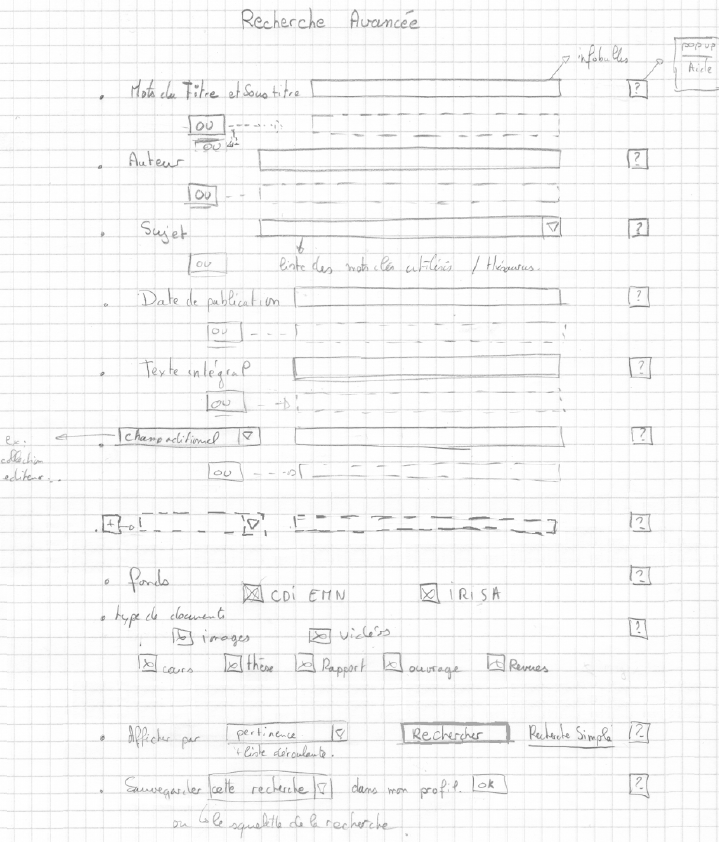 Recherche Avancée
infobulles
popup
Aide
Mots du Titre et Sous titre
?
OU
OU
Auteur
?
OU
Sujet
?
OU
liste des mots clés utilisés / thésaurus.
Date de publication
?
OU
Texte intégral
?
OU
Champ aditionnel
?
ex:
collection
editeur...
OU
+
?
fonds
CDI EMN
IRISA
?
type de documents
?
images
vidéos
cours
thèse
Rapport
ouvrage
Revues
Afficher par
pertinence
Rechercher
Recherche Simple
?
+ liste déroulante.
Sauvegarder cette recherche dans mon profil. ok
?
ou le squelette de la recherche.